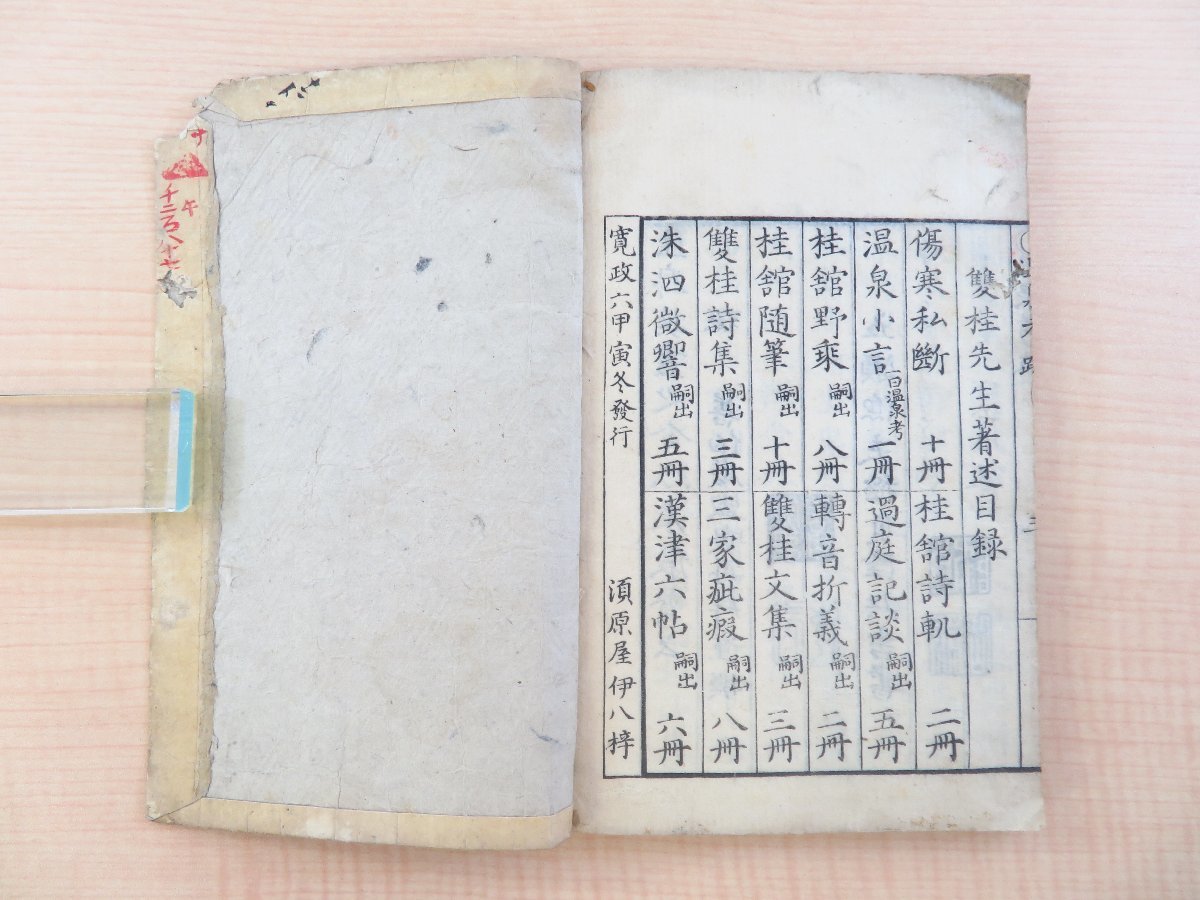 雙桂先生著述目録
傷寒私斷 十冊 桂舘詩軌 二冊
温泉小言 一曰温泉考 一冊 過庭記談 嗣出 五冊
桂舘野乘 嗣出 八冊 轉音折義 嗣出 二冊
桂舘随筆 嗣出 十冊 雙桂文集 嗣出 三冊
雙桂詩集 嗣出 三冊 三家疵瑕 嗣出 八冊
洙泗微響 嗣出 五冊 漢津六帖 嗣出 六冊
寛政六甲寅冬發行 須原屋伊八梓
午
千二百八十七